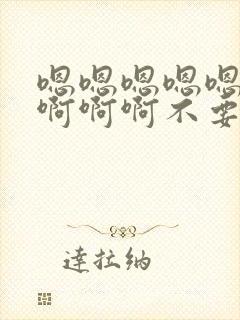 嗯嗯嗯嗯嗯
啊啊啊不要
達拉納